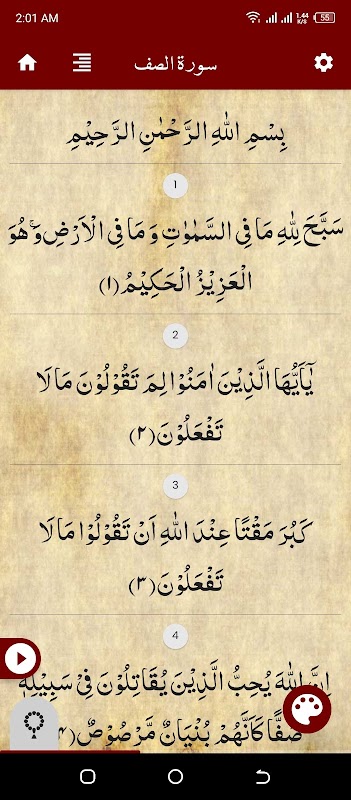 2:01 AM 1.44 K/s 55
سورة الصف
بِسْمِ اللّٰهِ الرَّحْمٰنِ الرَّحِیْمِ
1
سَبَّحَ لِلّٰهِ مَا فِی السَّمٰوٰتِ وَ مَا فِی الْاَرْضِۚ-وَ هُوَ
الْعَزِیْزُ الْحَكِیْمُ(۱)
2
یٰۤاَیُّهَا الَّذِیْنَ اٰمَنُوْا لِمَ تَقُوْلُوْنَ مَا لَا
تَفْعَلُوْنَ(۲)
3
كَبُرَ مَقْتًا عِنْدَ اللّٰهِ اَنْ تَقُوْلُوْا مَا لَا
تَفْعَلُوْنَ(۳)
4
اِنَّ اللّٰهَ یُحِبُّ الَّذِیْنَ یُقَاتِلُوْنَ فِیْ سَبِیْلِهٖ
صَفًّا كَاَنَّهُمْ بُنْیَانٌ مَّرْصُوْصٌ(۴)